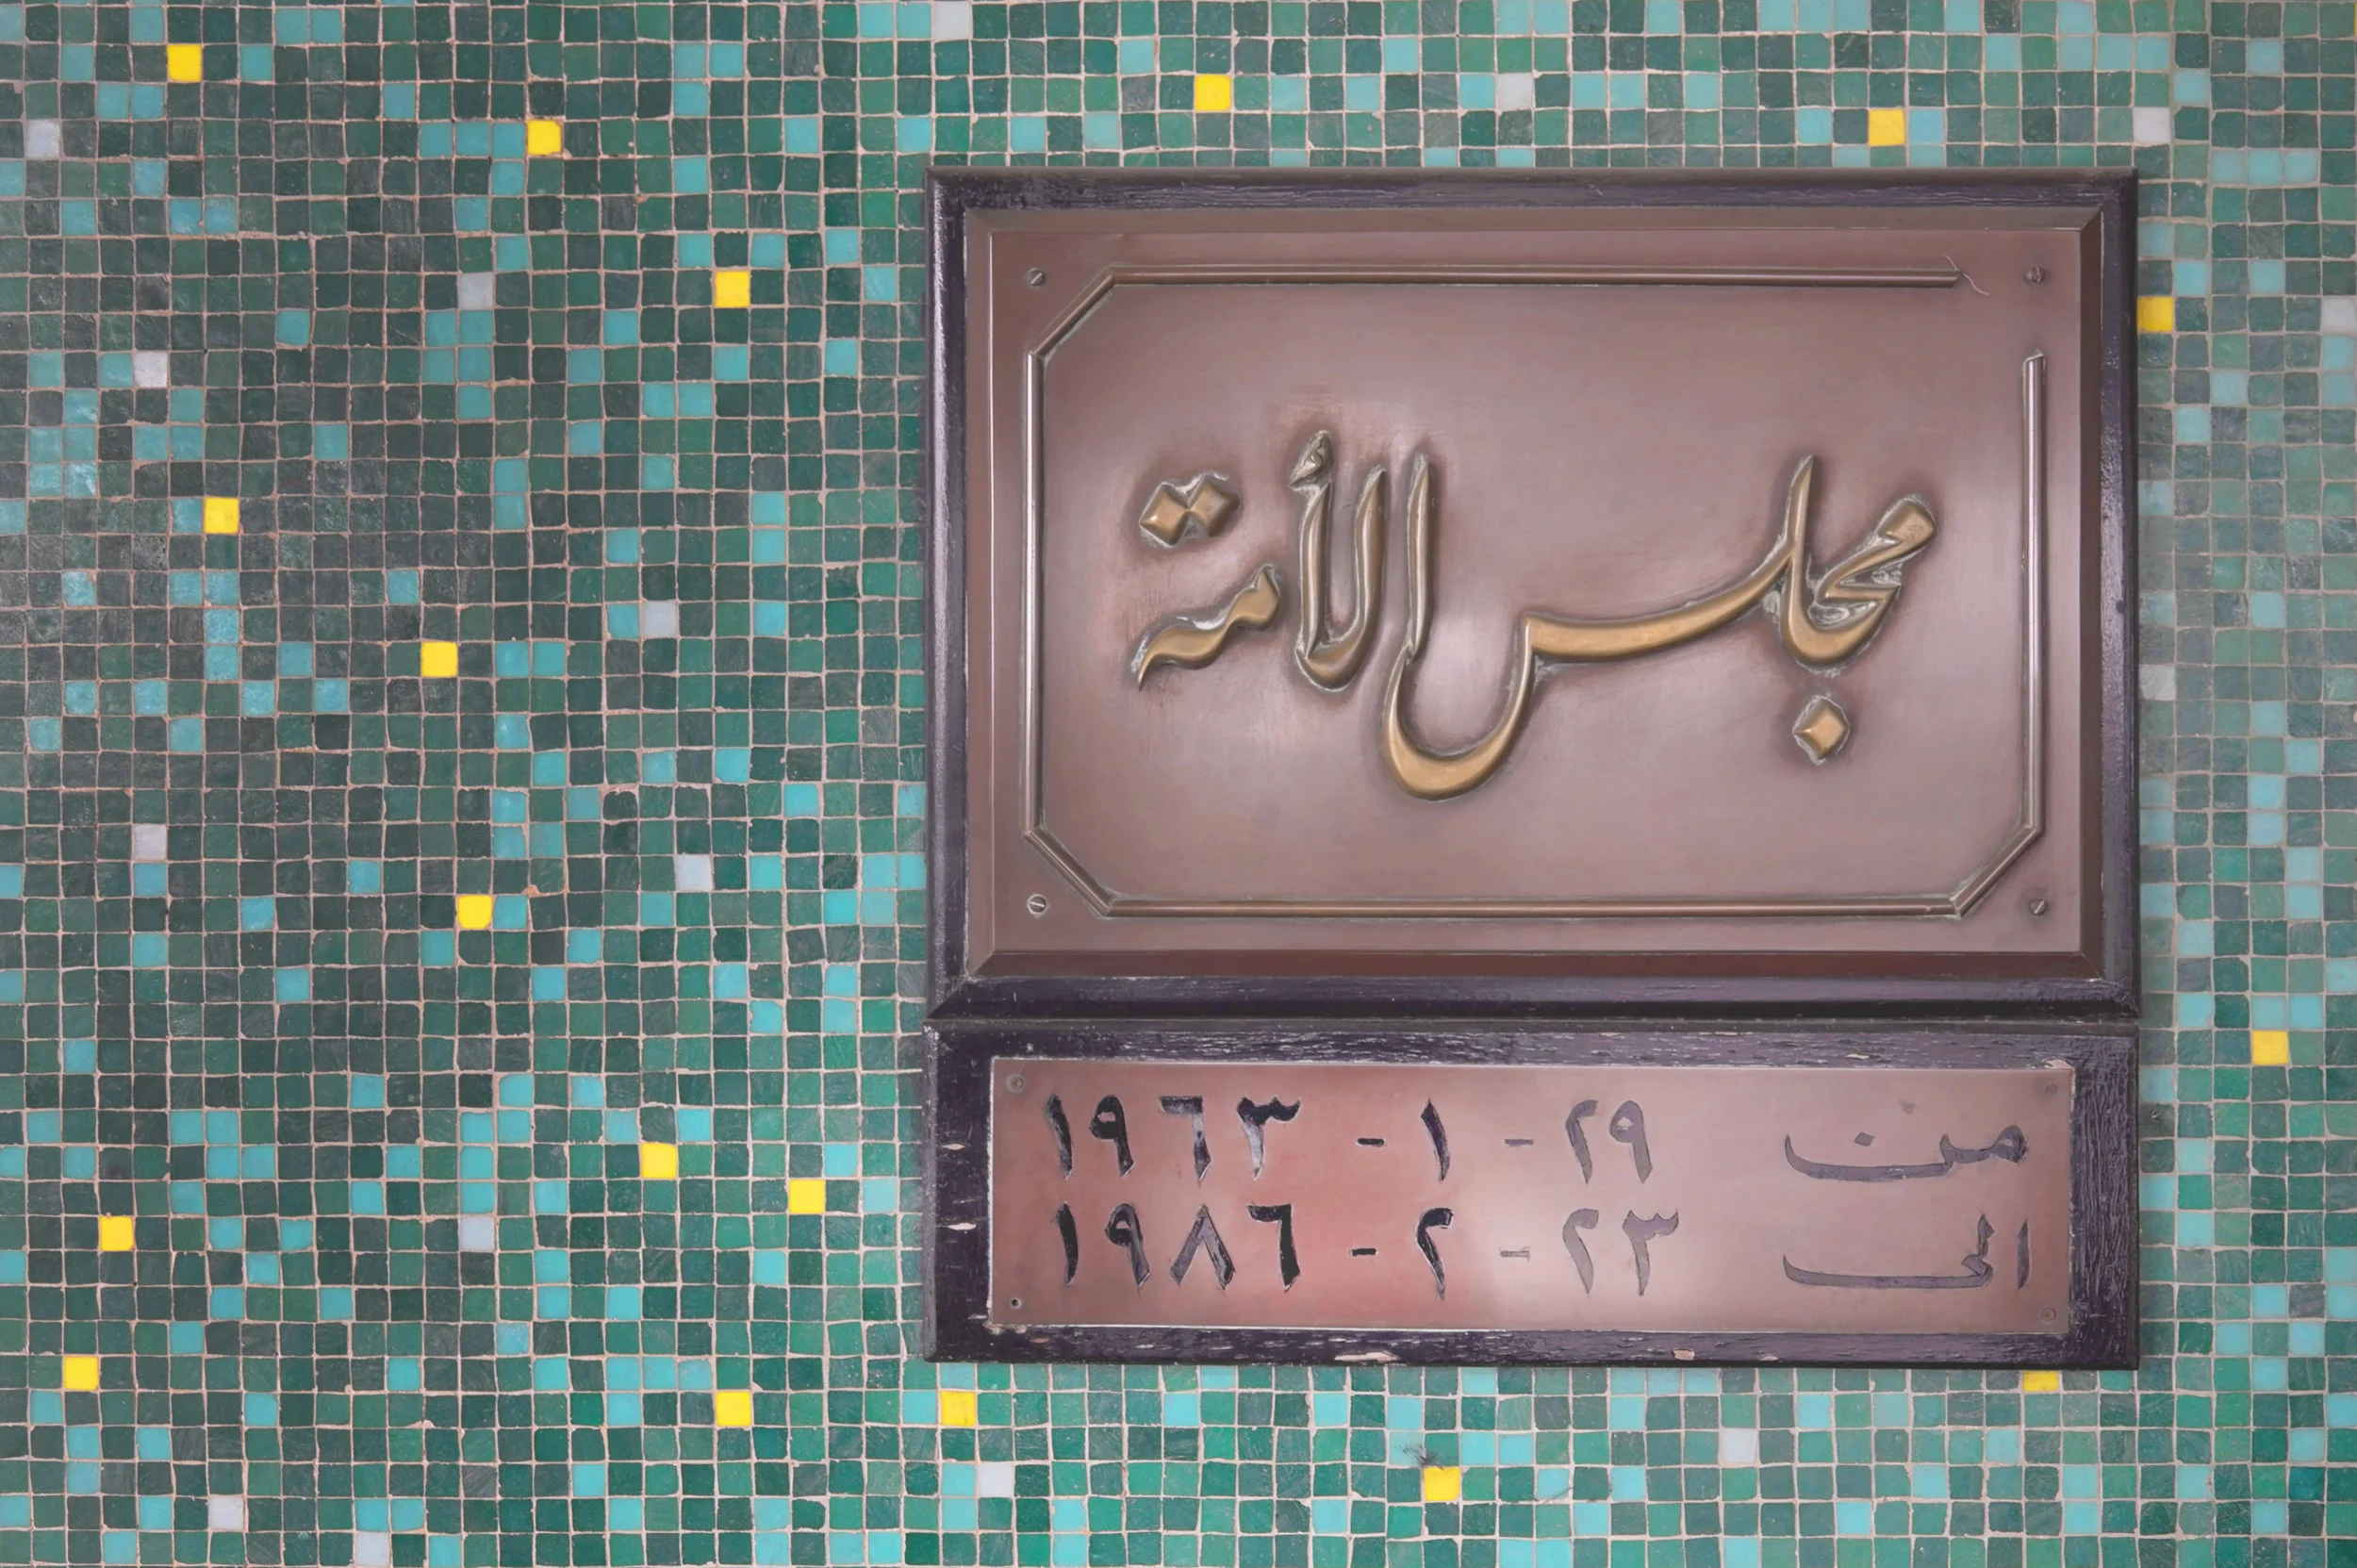 مجلس الأمة
من ٢٩ - ١ - ١٩٦٣
الى ٢٣ - ٢ - ١٩٨٦